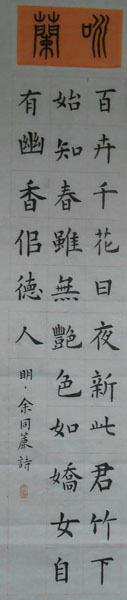 咏蘭
百卉千花日夜新此君竹下
始知春雖無艷色如嬌女自
有幽香佀德人 明·余同麓詩